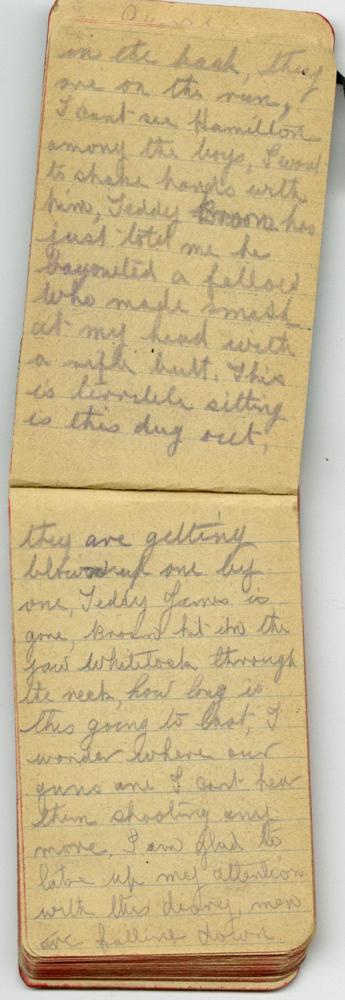 in the back, they
are on the run,
I cant see Hamilton
among the boys, I want
to shake hands with
him, Teddy Brown has
just told me he
bayoneted a fellow
who made smash
at my head with
a rifle butt. This
is terrible sitting
is this dug out,
they are getting
blown up one by
one, Teddy James is
gone, Brown hit in the
jaw Whitelock through
the neck, how long is
this going to last, I
wonder where our
guns are I cant hear
them shooting any
more, I am glad to
take up my attention
with this diary, men
are falling down